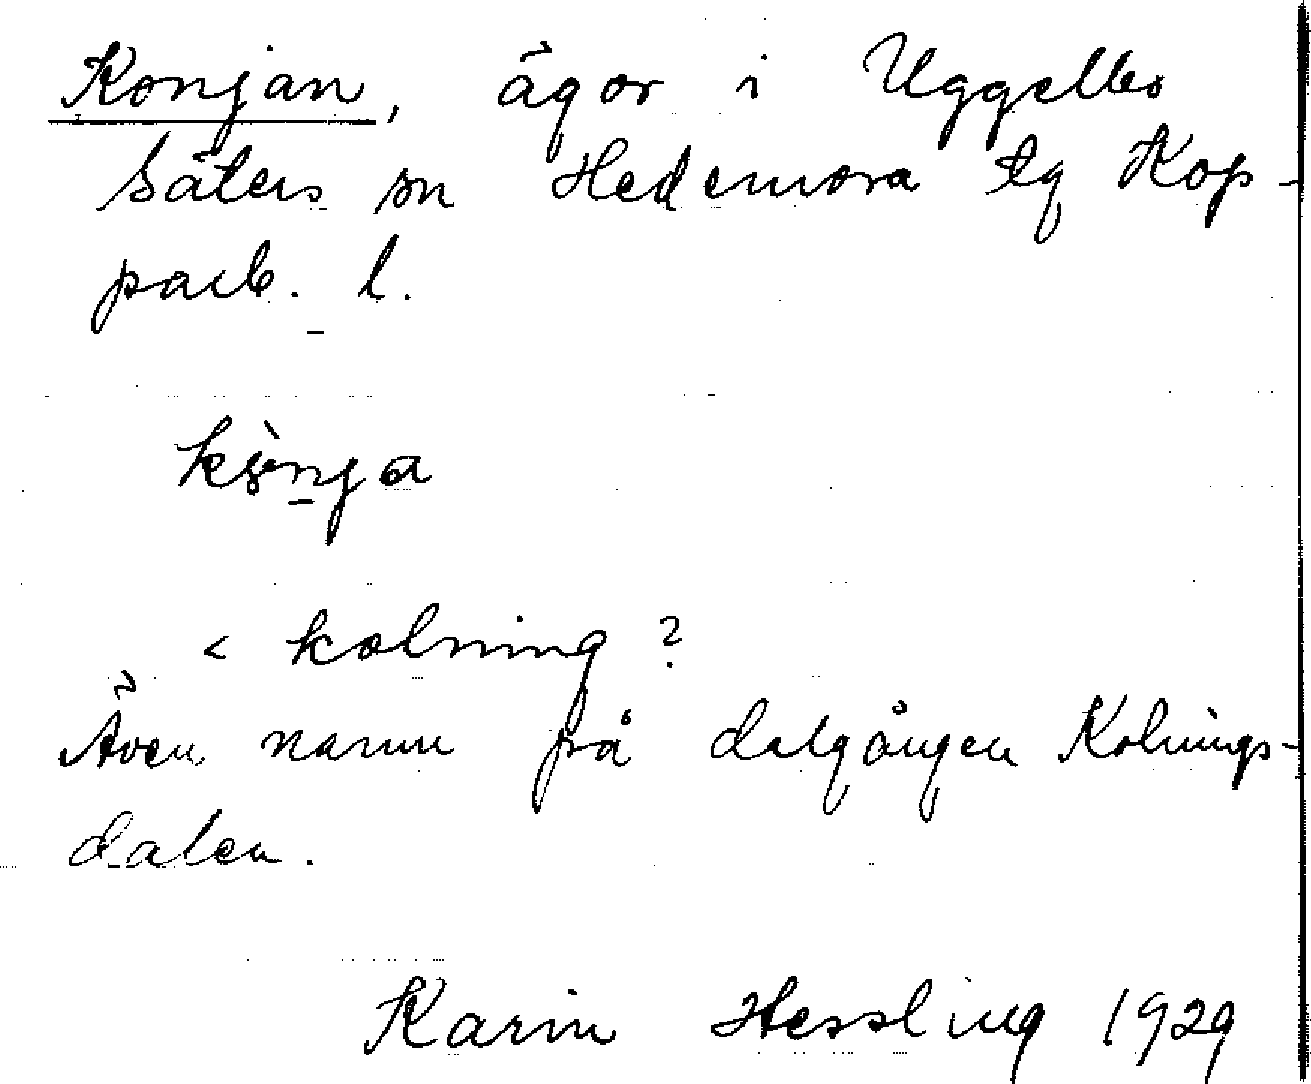 Konjan, ägor i Uggelbo
Säters sn Hedemora tg Kop-
parb. l.
< kolning ?
Även namn på dalgången Kolnings-
dalen.
Karin Hessling 1929